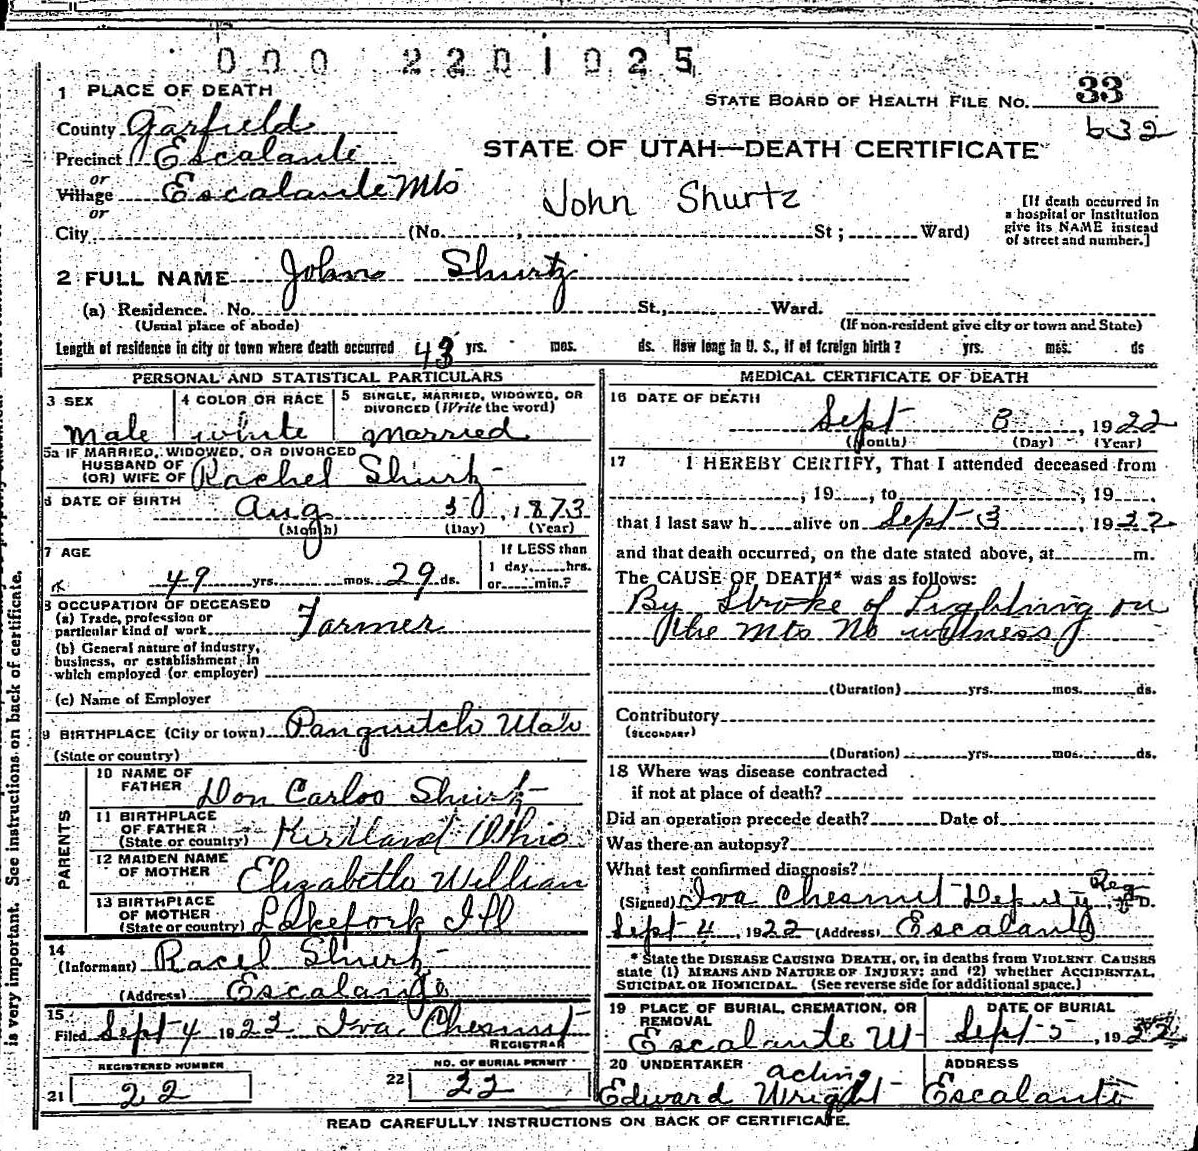 000 2201025
1 PLACE OF DEATH
STATE BOARD OF HEALTH FILE NO. 33
632
County Garfield
Precinct Escalante
STATE OF UTAH—DEATH CERTIFICATE
or
Village Escalante Mts
John Shurtz
[If death occurred in a hospital or institution give its NAME instead of street and number.]
or
City (No. , St ; Ward)
2 FULL NAME John Shurtz
(a) Residence. No. St., Ward.
(Usual place of abode) (If non-resident give city or town and State)
Length of residence in city or town where death occurred 43 yrs. mos. ds. How long in U. S., if of foreign birth? yrs. mos. ds
PERSONAL AND STATISTICAL PARTICULARS
3 SEX
Male
4 COLOR OR RACE
white
5 SINGLE, MARRIED, WIDOWED, OR DIVORCED (Write the word)
Married
5a IF MARRIED, WIDOWED, OR DIVORCED
HUSBAND OF
(OR) WIFE OF Rachel Shurtz
6 DATE OF BIRTH Aug , 1873
(Month) (Day) (Year)
7 AGE
49 yrs. mos. 29 ds.
If LESS than
1 day, hrs.
or min.?
8 OCCUPATION OF DECEASED
(a) Trade, profession or
particular kind of work Farmer
(b) General nature of industry,
business, or establishment in
which employed (or employer)
(c) Name of Employer
9 BIRTHPLACE (City or town) Panguitch Utah
(State or country)
PARENTS
10 NAME OF
FATHER Don Carlos Shurtz
11 BIRTHPLACE
OF FATHER
(State or country) Kirtland Ohio
12 MAIDEN NAME
OF MOTHER Elizabeth William
13 BIRTHPLACE
OF MOTHER
(State or country) Lakefork Ill
14
(Informant) Racel Shurtz
(Address) Escalante
15
Filed Sept 4 1922 Iva Chesnut
REGISTRAR
REGISTERED NUMBER
21 22
NO. OF BURIAL PERMIT
22 22
MEDICAL CERTIFICATE OF DEATH
16 DATE OF DEATH
Sept 3, 1922
(Month) (Day) (Year)
17 I HEREBY CERTIFY, That I attended deceased from
, 19 , to , 19 ,
that I last saw h alive on Sept 3, 1922
and that death occurred, on the date stated above, at m.
The CAUSE OF DEATH* was as follows:
By Stroke of Lightning on
the Mts No witness
(Duration) yrs. mos. ds.
Contributory
(SECONDARY)
(Duration) yrs. mos. ds.
18 Where was disease contracted
if not at place of death?
Did an operation precede death? Date of
Was there an autopsy?
What test confirmed diagnosis?
(Signed) Iva Chesnut Deputy Reg
Sept 4, 1922 (Address) Escalante
* State the DISEASE CAUSING DEATH, or, in deaths from VIOLENT CAUSES
state (1) MEANS AND NATURE OF INJURY; and (2) whether ACCIDENTAL,
SUICIDAL OR HOMICIDAL. (See reverse side for additional space.)
19 PLACE OF BURIAL, CREMATION, OR
REMOVAL
Escalante Ut
DATE OF BURIAL
Sept 5, 1922
20 UNDERTAKER acting
Edward Wright
ADDRESS
Escalante
READ CAREFULLY INSTRUCTIONS ON BACK OF CERTIFICATE.
is very important. See instructions on back of certificate.